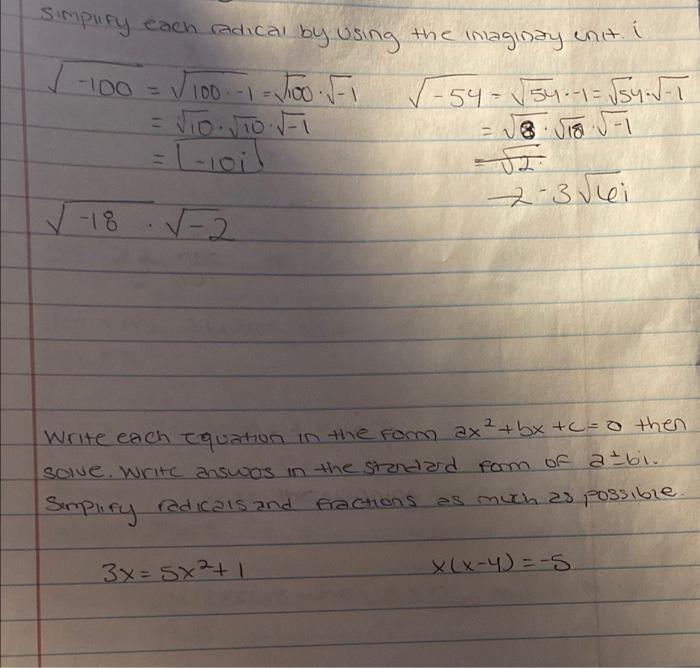 Simplify each radical by using the imaginay unit i
√-100 = √100·-1 = √100·√-1
= √10·√10·√-1
= -10i
√-54 = √54·-1 = √54·√-1
= √8·√18·√-1
= √2·
-2-3√6i
√-18 · √-2
Write each Equation in the form ax²+bx+c=0 then
solve. Write answers in the standard form of a±bi.
Simplify radicals and fractions as much as possible.
3x=5x²+1
x(x-4)=-5